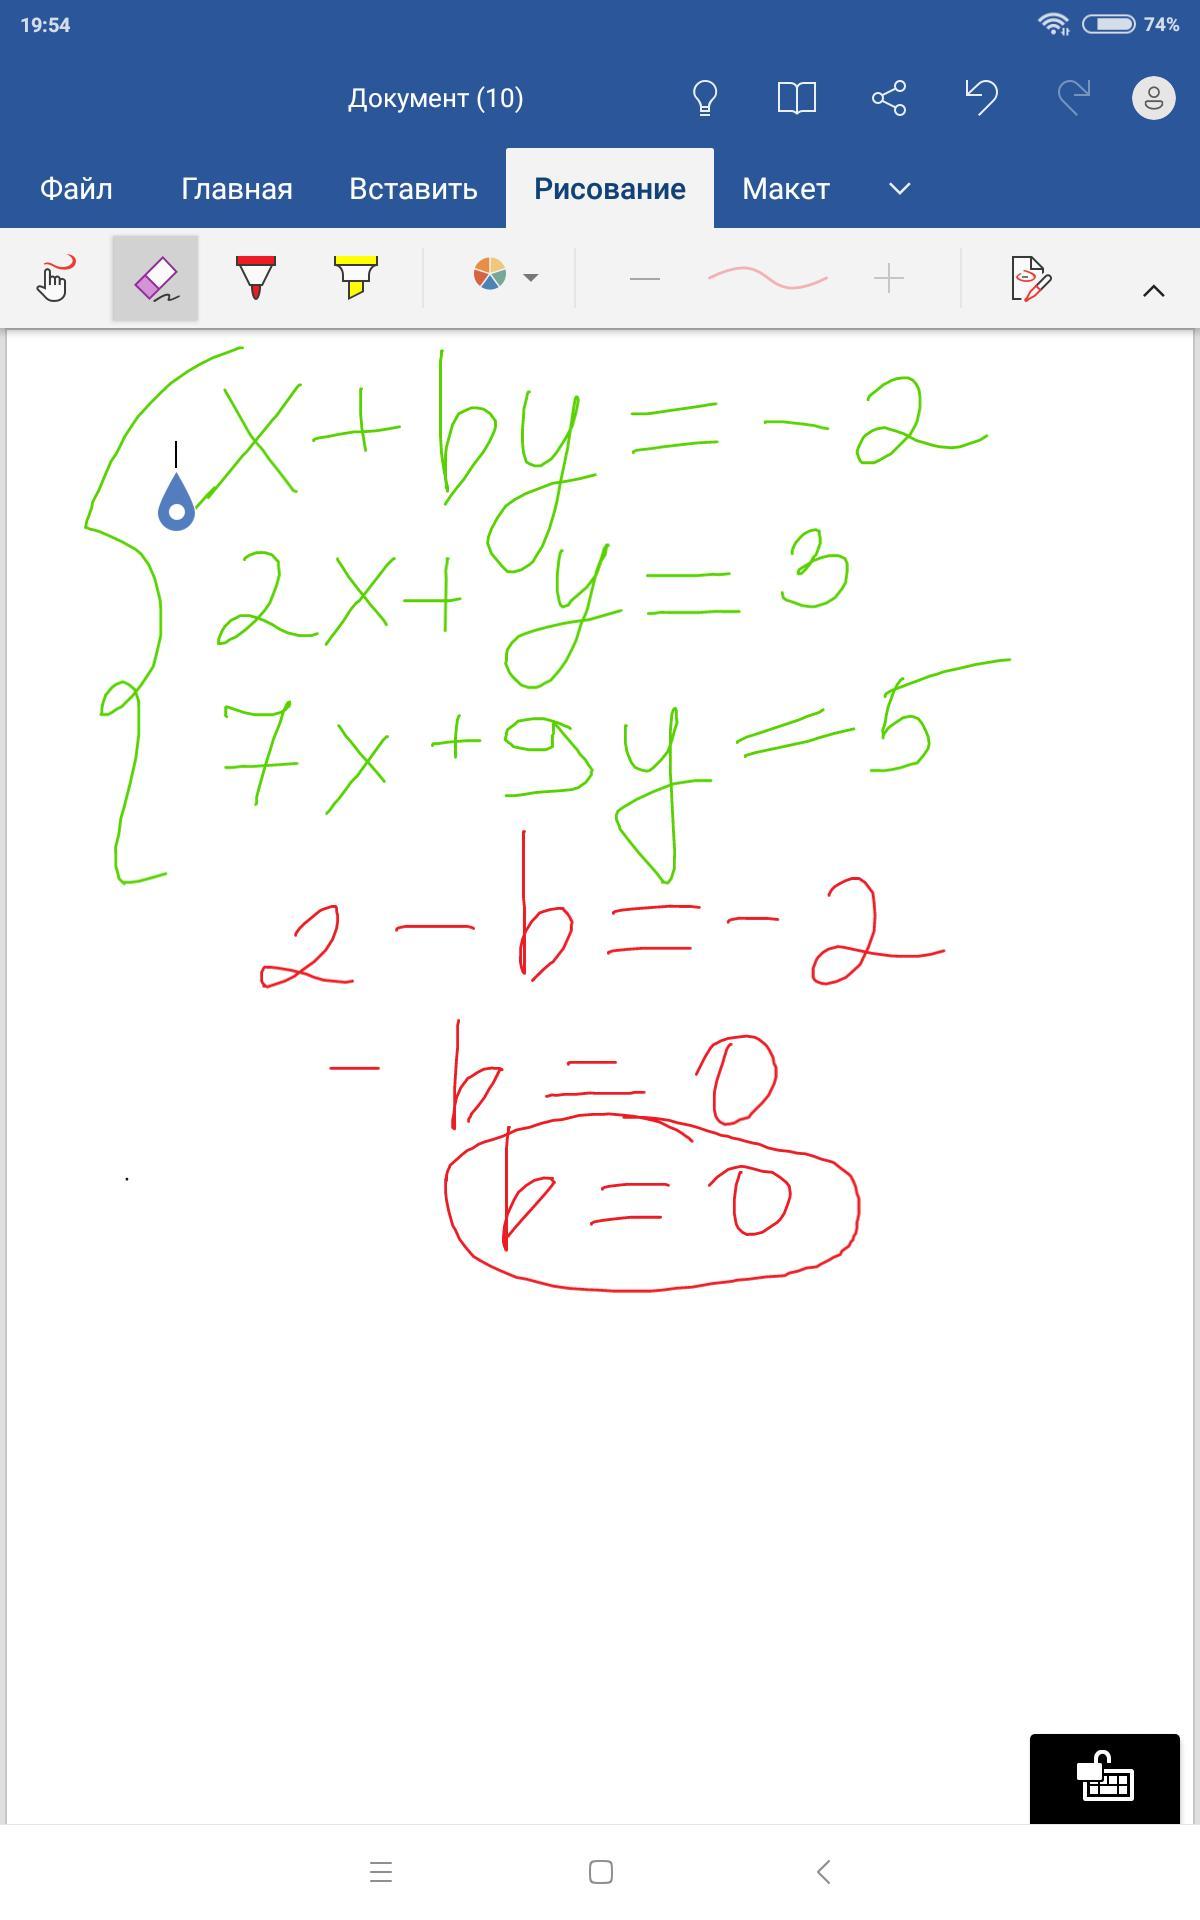 19:54 74%
Документ (10)
Файл Главная Вставить Рисование Макет
x + by = - 2
2x + y = 3
7x + 9y = 5
2 - b = - 2
- b = 0
b = 0